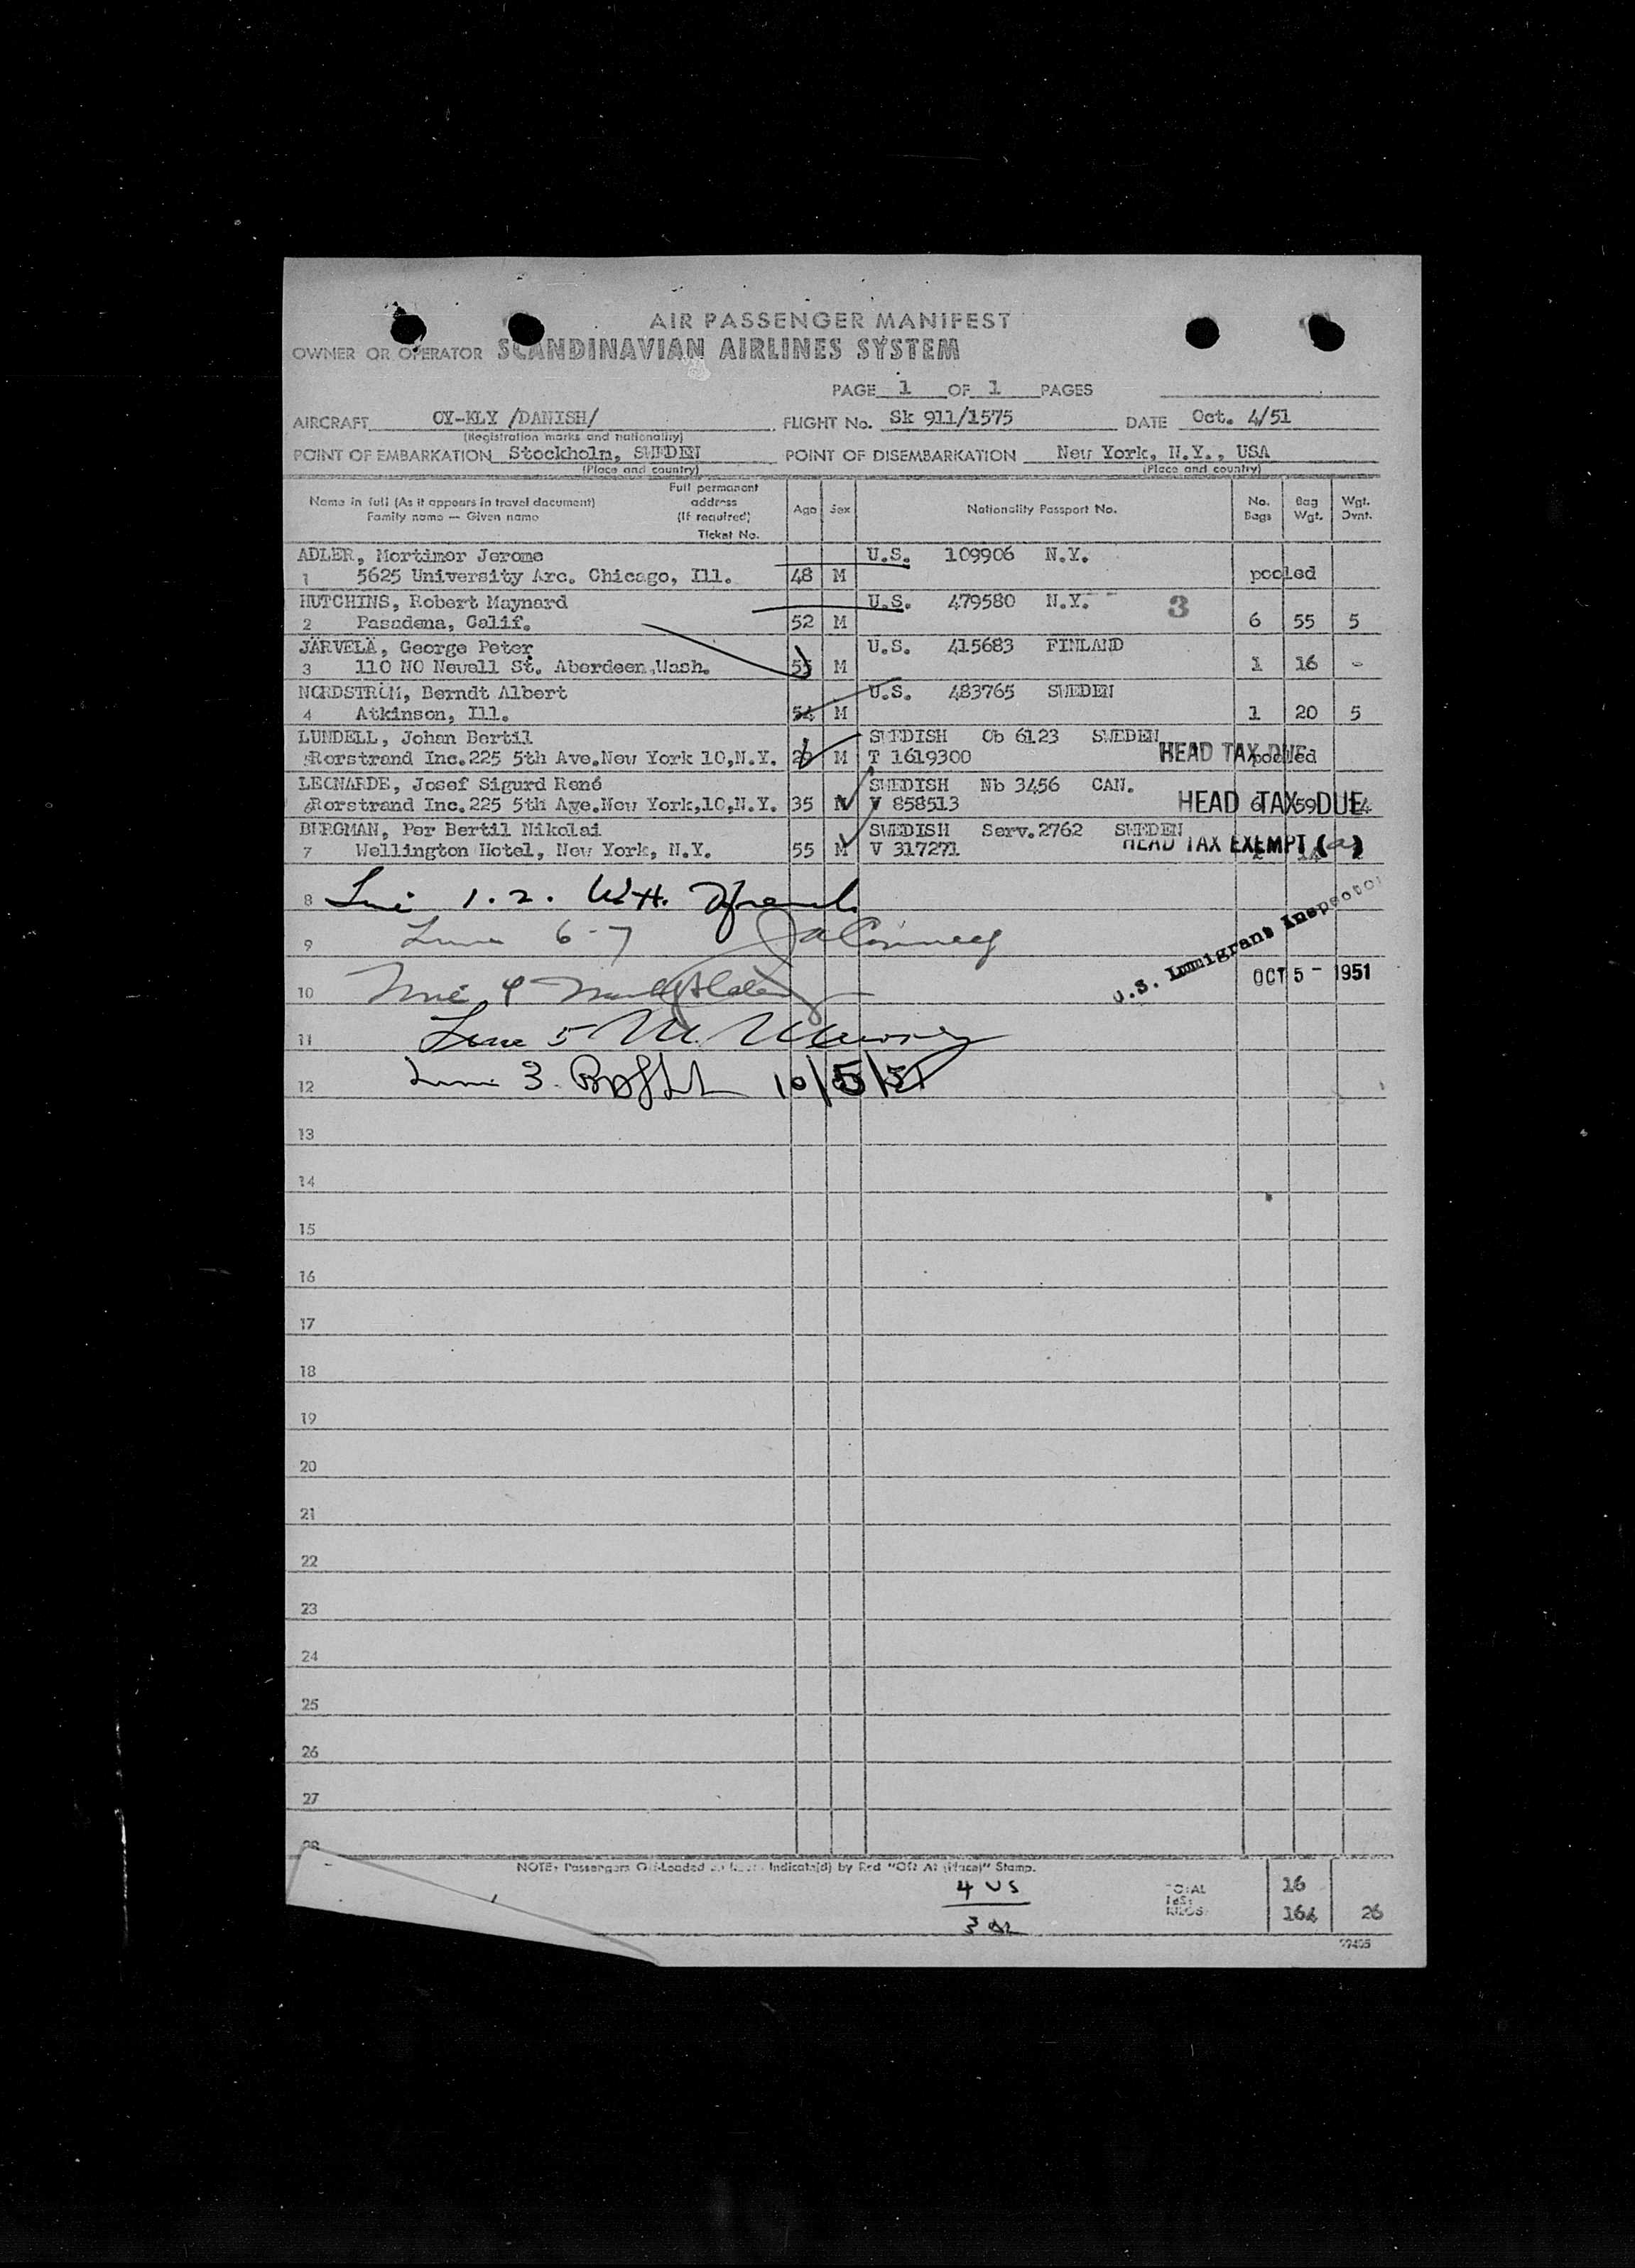 AIR PASSENGER MANIFEST
OWNER OR OPERATOR SCANDINAVIAN AIRLINES SYSTEM
PAGE 1 OF 1 PAGES
AIRCRAFT OY-KLY /DANISH/ FLIGHT No. Sk 911/1575 DATE Oct. 4/51
(Registration marks and nationality)
POINT OF EMBARKATION Stockholm, SWEDEN POINT OF DISEMBARKATION New York, N.Y., USA
(Place and country) (Place and country)
Name in full (As it appears in travel document) Family name — Given name Full permanent address (If required) Ticket No. Age Sex Nationality Passport No. No. Bags Bag Wgt. Wgt. Ovnt.
ADLER, Mortimer Jerome U.S. 109906 N.Y.
1 5625 University Arc. Chicago, Ill. 48 M pooled
HUTCHINS, Robert Maynard U.S. 479580 N.Y. 3
2 Pasadena, Calif. 52 M 6 55 5
JÄRVELÄ, George Peter U.S. 415683 FINLAND
3 110 NO Newell St. Aberdeen,Wash. 55 M 1 16 -
NORDSTRÖM, Berndt Albert U.S. 483765 SWEDEN
4 Atkinson, Ill. 54 M 1 20 5
LUNDELL, Johan Bertil SWEDISH Ob 6123 SWEDEN
Rorstrand Inc.225 5th Ave.New York 10,N.Y. M T 1619300 HEAD TAX DUE pooled
LEONARDE, Josef Sigurd René SWEDISH Nb 3456 CAN.
Rorstrand Inc.225 5th Ave.New York,10,N.Y. 35 M V 858513 HEAD TAX DUE 6 59 14
BERGMAN, Per Bertil Nikolai SWEDISH Serv.2762 SWEDEN
7 Wellington Hotel, New York, N.Y. 55 M V 317271 HEAD TAX EXEMPT (a)
8 1.2. W.H.
9 Line 6-7
U.S. Immigrant Inspector
10 OCT 5 - 1951
11 Line 5 M.
12 Line 3 10/5/51
13
14
15
16
17
18
19
20
21
22
23
24
25
26
27
28
NOTE: Passengers Off-Loaded Indicate(d) by Red "Off At (Place)" Stamp.
4 US TOTAL 16
3 KILOS 164 26